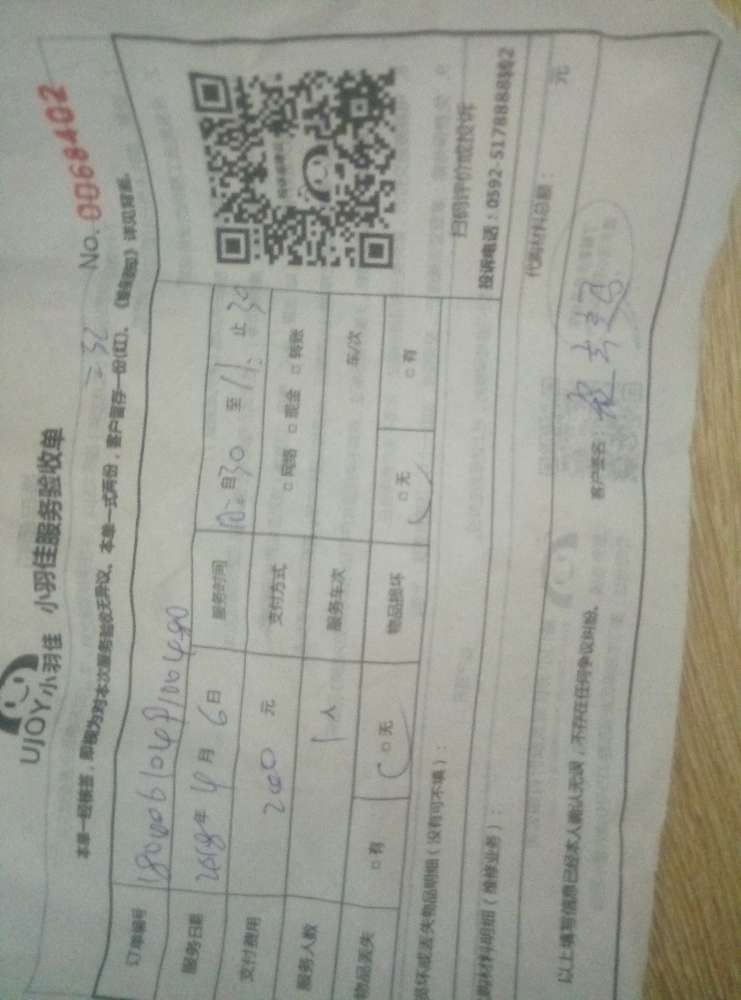 UJOY小羽佳 小羽佳服务验收单
No. 0068402
本单一经核签，即视为对本次服务验收无异议。本单一式两份，客户留存一份(红)。
订单编号
服务日期 2018年4月6日 服务时间 自 30 至 11: 止 30
支付费用 200 元 支付方式 □网络 □现金 □转账
服务人数 1人 服务车次 车/次
物品丢失 □有 □无 物品损坏 □无 □有
扫码评价或投诉
投诉电话：0592-5178888转2
损坏或丢失物品明细（没有可不填）：
购材料明细（维修业务）： 代购材料总额： 元
以上填写信息已经本人确认无误，不存在任何争议纠纷。 客户签名：